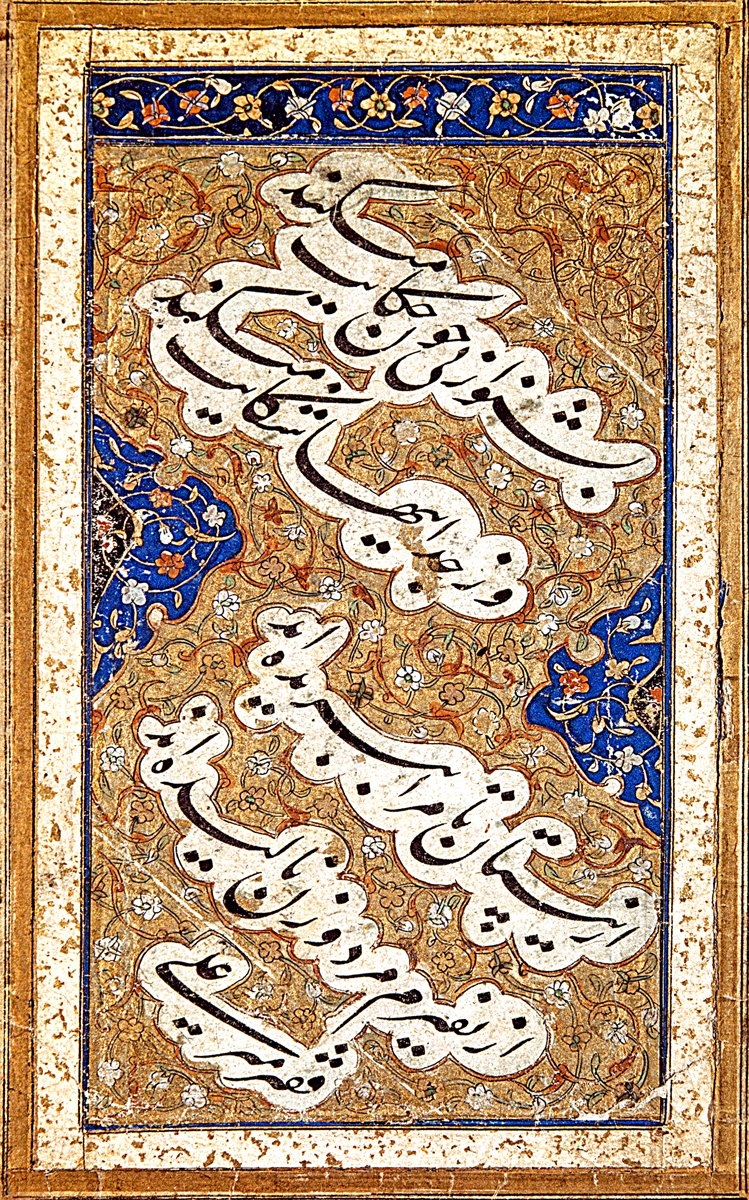 بشنو از نی چون حکایت میکند
وز جداییها شکایت میکند
از نیستان تا مرا ببریده اند
از نفیرم مرد و زن نالیده اند
فقیر میر علی